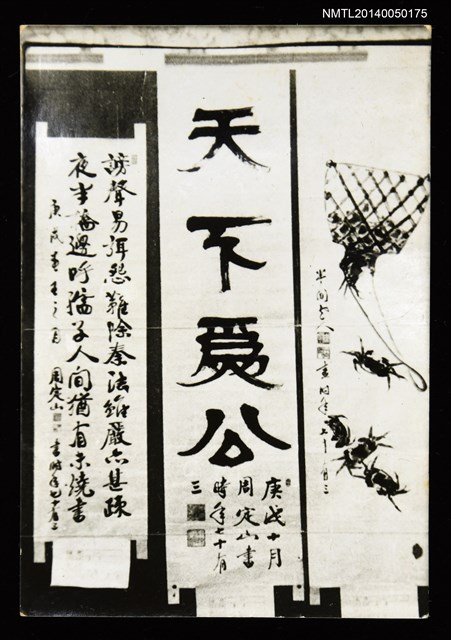 NMTL20140050175
半閒老人
畫時年七十有三
天下爲公
庚戌十月
周定山書
時年七十有
三
謗聲易弭怨難除秦法雖嚴亦甚疎
夜半橋邊呼孺子人間猶有未燒書
庚戌 之 周定山 書時年七十有三